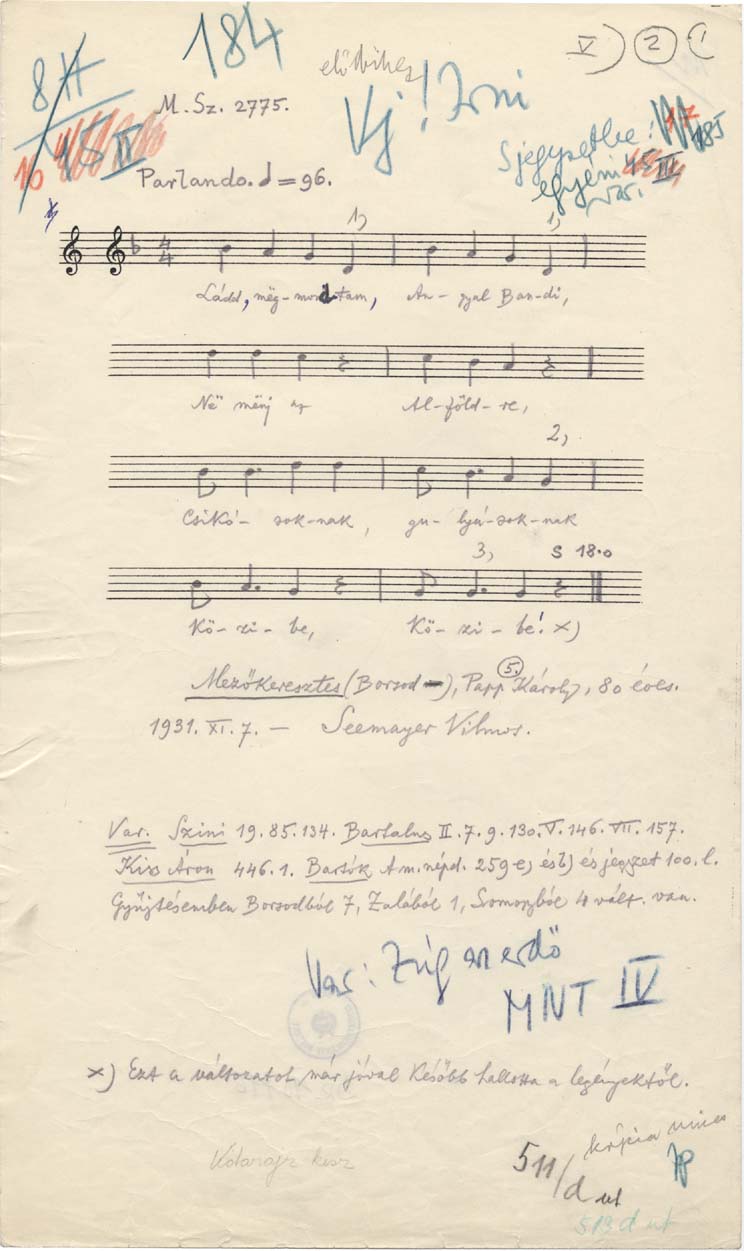 8 II
184
V) 2 (1
M. Sz. 2775.
Uj! Irni
10 15 IV
S jegyzetbe: 185
egyéni 45 III
var.
Parlando. = 96.
1) 1)
4 4
Ládd, mëg-mondtam, An-gyal Ban-di,
Në mënj az Al-föld-re,
2,
Csikó-sok-nak, gu-lyá-sok-nak
3, S 18.0
Kö-zi-be, Kö-zi-be! x)
5.
Mezőkeresztes (Borsod), Papp Károly, 80 éves.
1931. XI. 7. — Seemayer Vilmos.
Var. Szini 19. 85. 134. Bartalus II. 7. 9. 130. V. 146. VII. 157.
Kiss Áron 446. 1. Bartók A m. népd. 259 a) és b) és jegyzet 100. l.
Gyűjtésemben Borsodból 7, Zalából 1, Somogyból 4 vált. van.
Var: Zúg az erdő
MNT IV
x) Ezt a változatot már jóval később hallotta a legényektől.
kópia nincs
Kótarajz kész
511/d ut
513 d ut